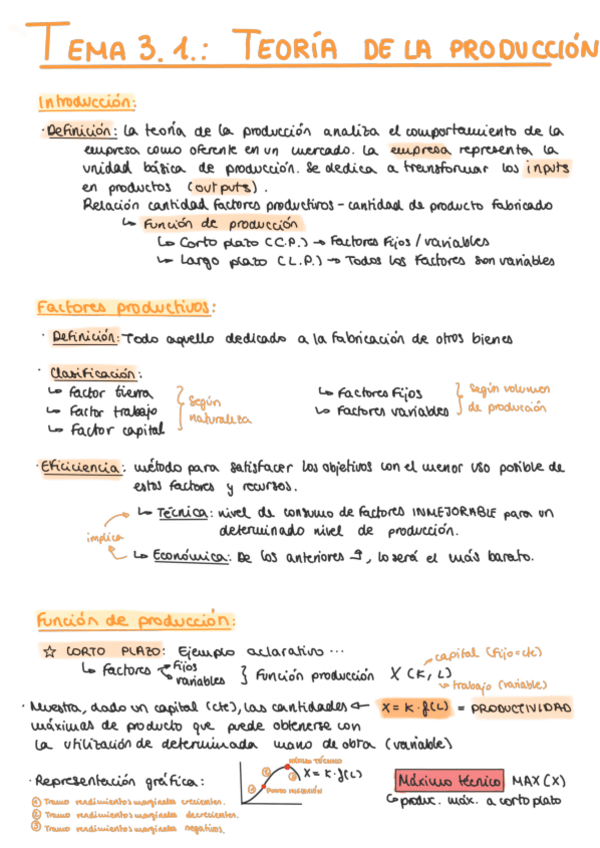 TEMA 3.1.: TEORÍA DE LA PRODUCCIÓN
Introducción:
· Definición: La teoría de la producción analiza el comportamiento de la
empresa como oferente en un mercado. La empresa representa la
unidad básica de producción. Se dedica a transformar los inputs
en productos (outputs).
Relación cantidad factores productivos - cantidad de producto fabricado
↳ Función de producción
↳ Corto plazo (C.P.) → Factores Fijos / variables
↳ Largo plazo (L.P.) → Todos los factores son variables
Factores productivos:
· Definición: Todo aquello dedicado a la fabricación de otros bienes
· Clasificación:
↳ Factor tierra
↳ Factor trabajo
↳ Factor capital
Según
naturaleza
↳ Factores Fijos
↳ Factores variables
Según volumen
de producción
· Eficiciencia: método para satisfacer los objetivos con el menor uso posible de
estos factores y recursos.
↳ Técnica: nivel de consumo de factores INMEJORABLE para un
determinado nivel de producción.
implica
↳ Económica: De los anteriores, lo será el más barato.
Función de producción:
☆ CORTO PLAZO: Ejemplo aclarativo ...
↳ Factores Fijos
variables } Función producción X (K, L)
capital (fijo=cte)
trabajo (variable)
· Muestra, dado un capital (cte), las cantidades ← X = K · f(L) = PRODUCTIVIDAD
máximas de producto que puede obtenerse con
la utilización de determinada mano de obra (variable)
· Representación gráfica:
① Tramo rendimientos marginales crecientes.
② Tramo rendimientos marginales decrecientes.
③ Tramo rendimientos marginales negativos.
MÁXIMO TÉCNICO
① ② ③
X = K · f(L)
PUNTO INFLEXIÓN
Máximo técnico MAX (X)
↳ produc. máx. a corto plato